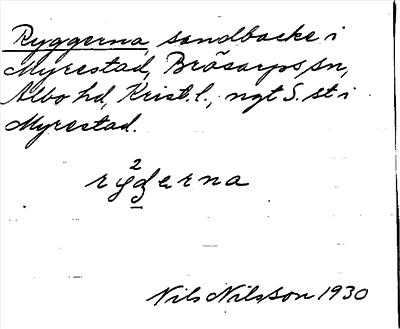 Ryggerna, sandbacke i
Myrestad, Brösarps sn,
Albo hd, Krist. l., ngt S. st i
Myrestad.
2
ryg̲erna
Nils Nilsson 1930